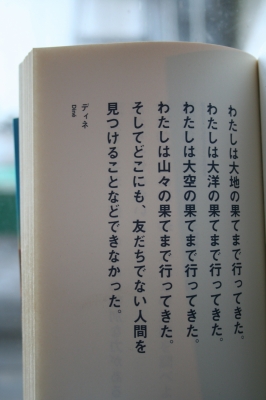 わたしは大地の果てまで行ってきた。
わたしは大洋の果てまで行ってきた。
わたしは大空の果てまで行ってきた。
わたしは山々の果てまで行ってきた。
そしてどこにも、友だちでない人間を
見つけることなどできなかった。
ディネ
Diné